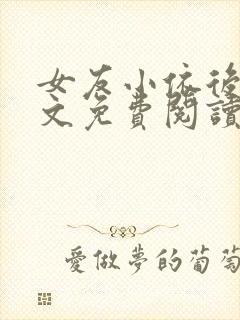 女友小依後
文免費閱讀
愛做夢的葡萄